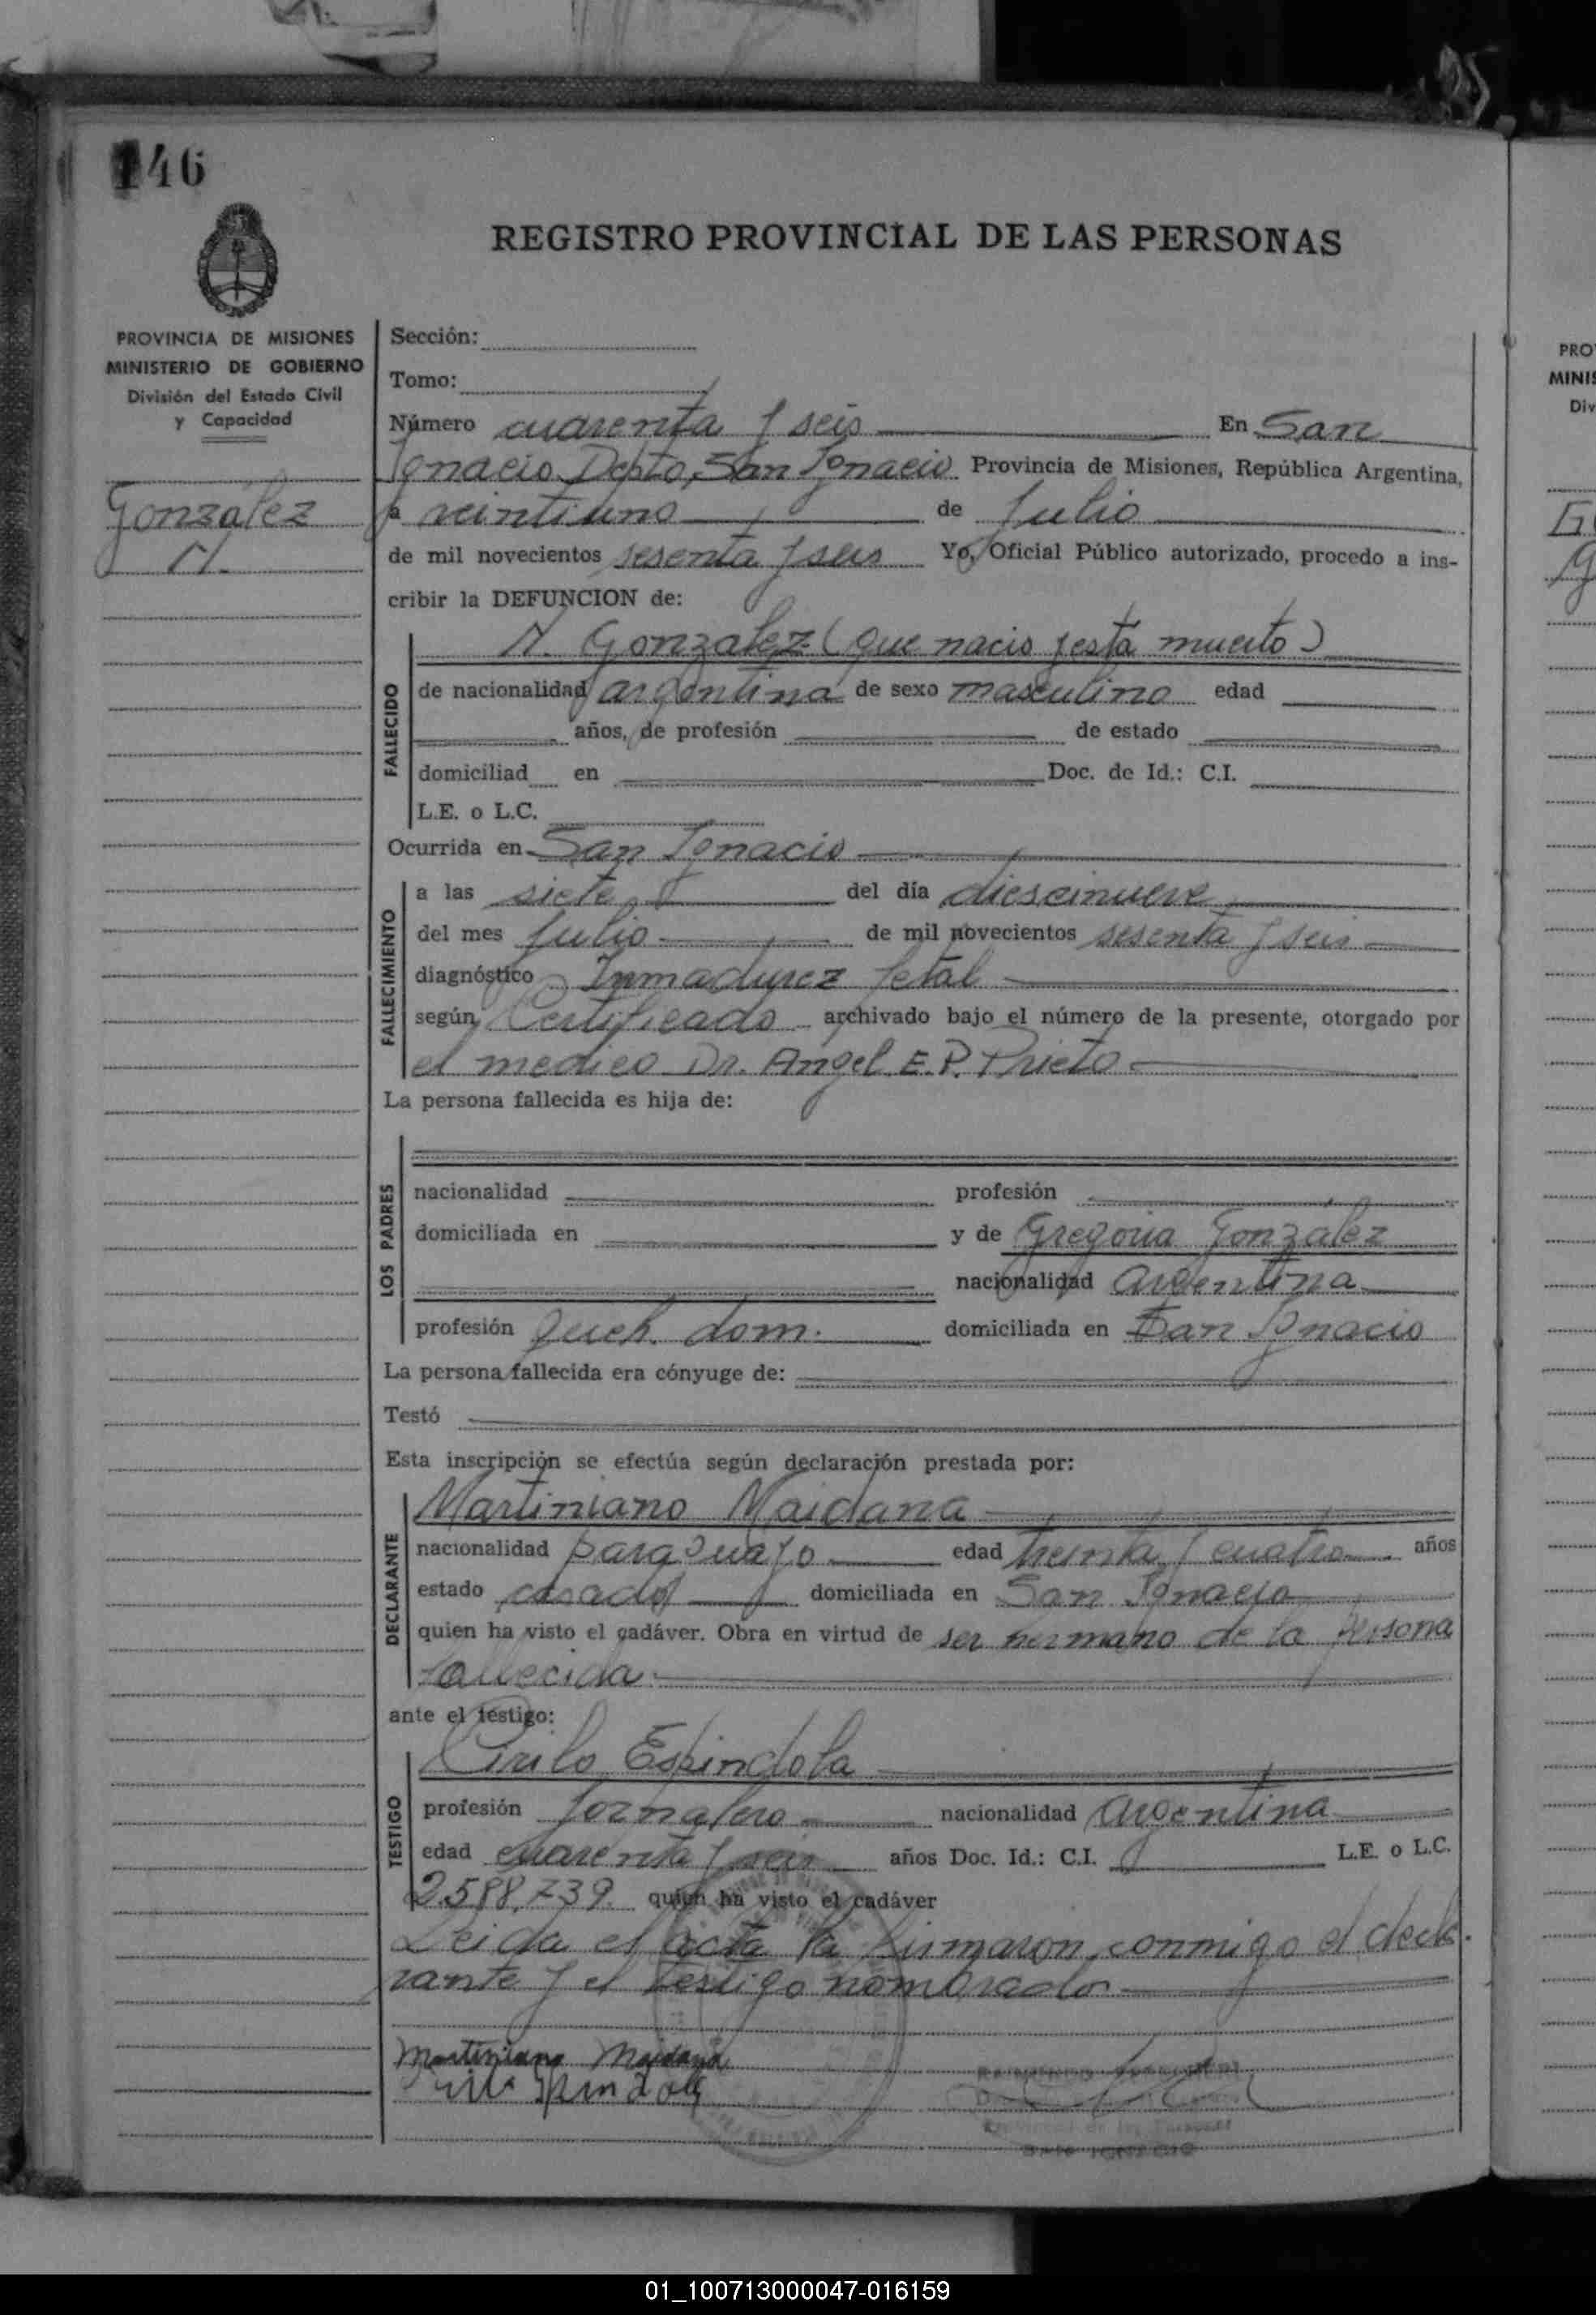 146
REGISTRO PROVINCIAL DE LAS PERSONAS
PROVINCIA DE MISIONES
MINISTERIO DE GOBIERNO
División del Estado Civil
y Capacidad
González
N.
Sección:
Tomo:
Número cuarenta y seis En San
Ignacio Depto, San Ignacio Provincia de Misiones, República Argentina,
a veintiuno de Julio
de mil novecientos sesenta y seis Yo, Oficial Público autorizado, procedo a ins-
cribir la DEFUNCION de:
FALLECIDO
N. Gonzalez (que nacio y esta muerto)
de nacionalidad argentina de sexo masculino edad
años, de profesión de estado
domiciliad en Doc. de Id.: C.I.
L.E. o L.C.
Ocurrida en San Ignacio
FALLECIMIENTO
a las siete del día diescinueve
del mes Julio de mil novecientos sesenta y seis
diagnóstico Inmadurez fetal
según Certificado archivado bajo el número de la presente, otorgado por
el medico Dr. Angel E.P. Prieto
La persona fallecida es hija de:
LOS PADRES
nacionalidad profesión
domiciliada en y de Gregoria González
nacionalidad argentina
profesión queh. dom. domiciliada en San Ignacio
La persona fallecida era cónyuge de:
Testó
Esta inscripción se efectúa según declaración prestada por:
DECLARANTE
Martiniano Maidana
nacionalidad paraguayo edad treinta y cuatro años
estado casado domiciliada en San Ignacio
quien ha visto el cadáver. Obra en virtud de ser hermano de la persona
fallecida.
ante el testigo:
TESTIGO
Cirilo Espindola
profesión Jornalero nacionalidad argentina
edad cuarenta y seis años Doc. Id.: C.I. L.E. o L.C.
2.588.739. quien ha visto el cadáver
Leida el acta la firmaron conmigo el decla-
rante y el testigo nombrado
Martiniano Maidana
SAN IGNACIO
PRO
MINIS
Div
01_100713000047-016159